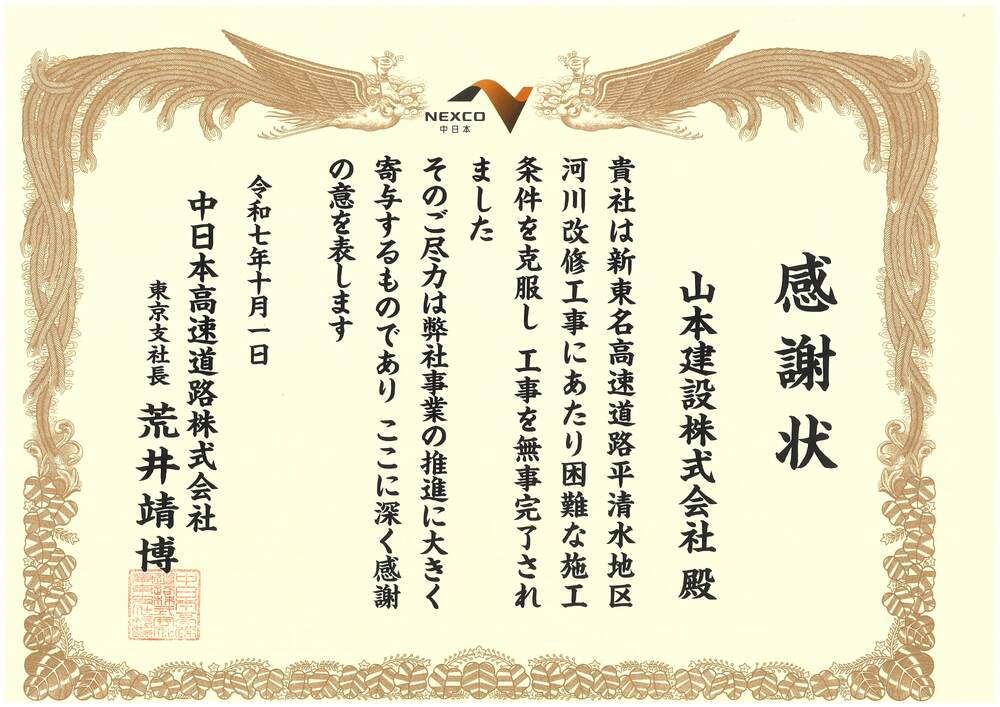 NEXCO
中日本
感謝状
山本建設株式会社 殿
貴社は新東名高速道路平清水地区
河川改修工事にあたり困難な施工
条件を克服し 工事を無事完了され
ました
そのご尽力は弊社事業の推進に大きく
寄与するものであり ここに深く感謝
の意を表します
令和七年十月一日
中日本高速道路株式会社
東京支社長 荒井靖博